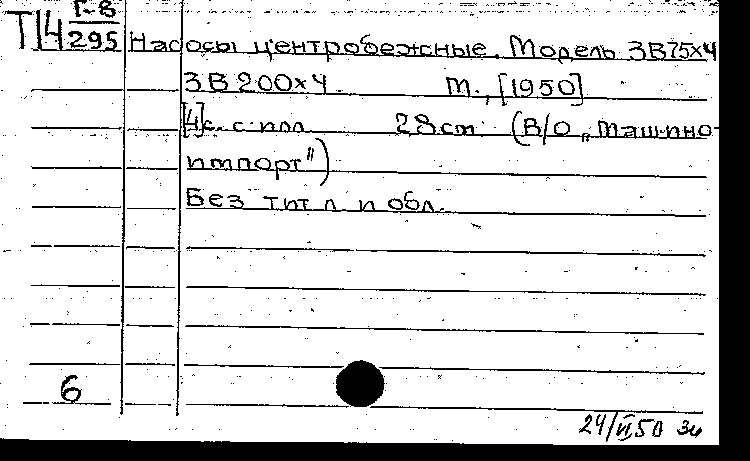 Г-8
Т14 295 Насосы центробежные. Модель 3В75×4
3В200×4. М., [1950]
[4]с. с илл. 28см. (В/О „Машино-
импорт")
Без тит л и обл.
6
24/VI 50 Зи